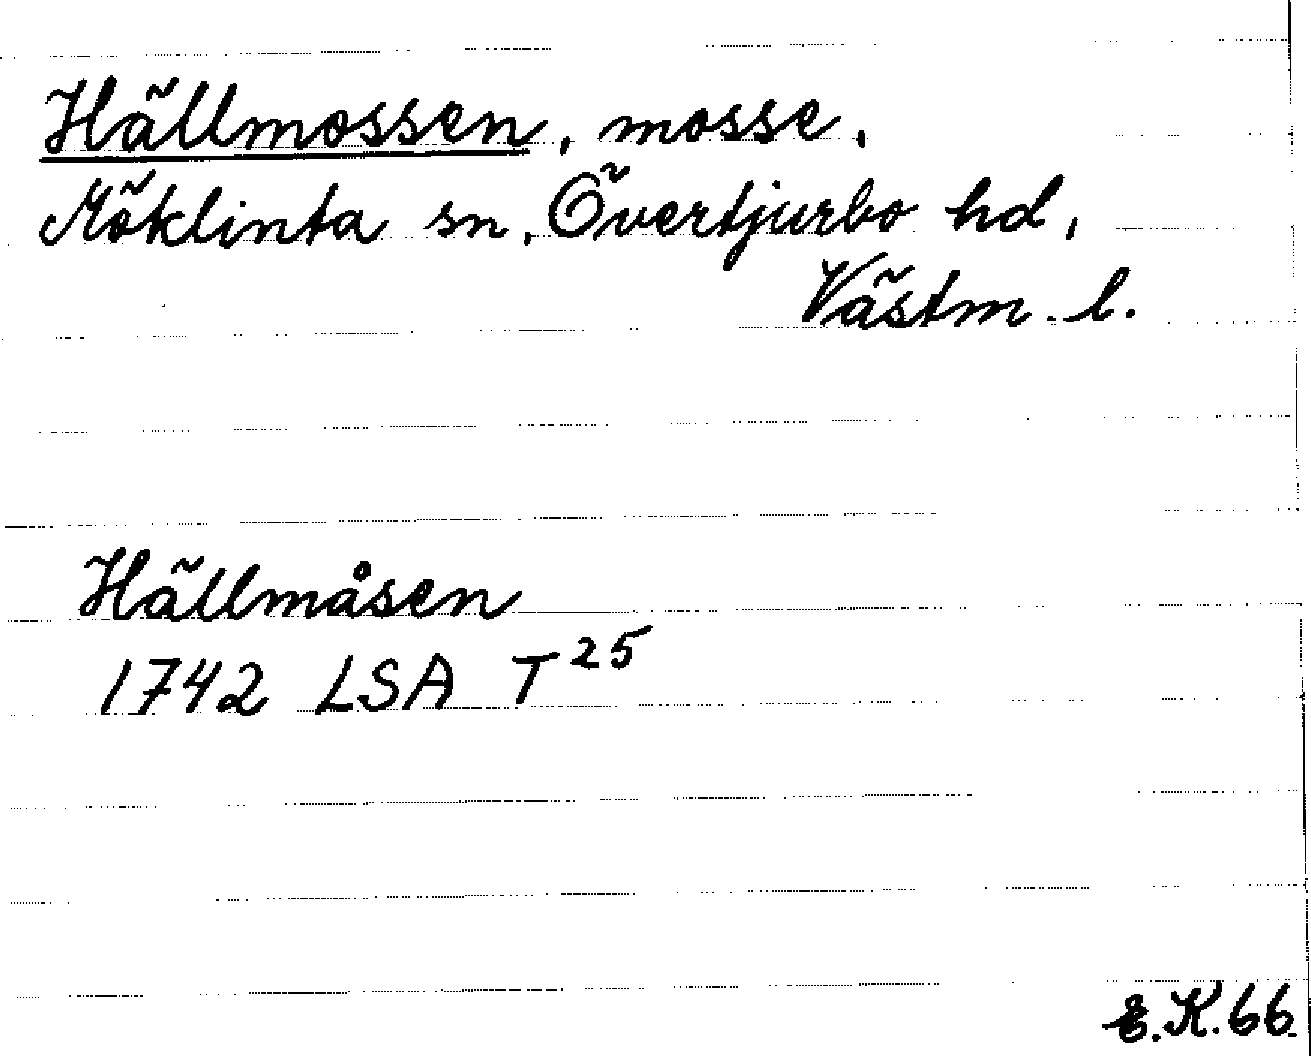 Hällmossen, mosse,
Möklinta sn, Övertjurbo hd,
Västm. l.
Hällmåsen
1742 LSA T 25
E.K.66